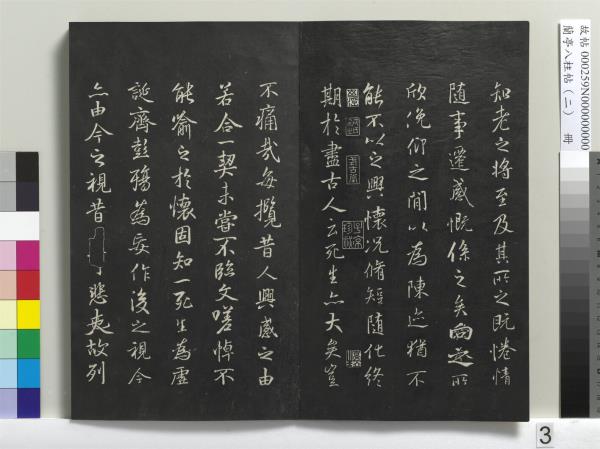 知老之將至及其所之既惓情
隨事遷感慨係之矣向之所
欣俛仰之閒以為陳迹猶不
能不以之興懷況脩短隨化終
期於盡古人云死生亦大矣豈
不痛哉每攬昔人興感之由
若合一契未嘗不臨文嗟悼不
能喻之於懷固知一死生為虛
誕齊彭殤為妄作後之視今
亦由今之視昔 悲夫故列
故帖 000259N000000000
蘭亭八柱帖(二) 冊
3